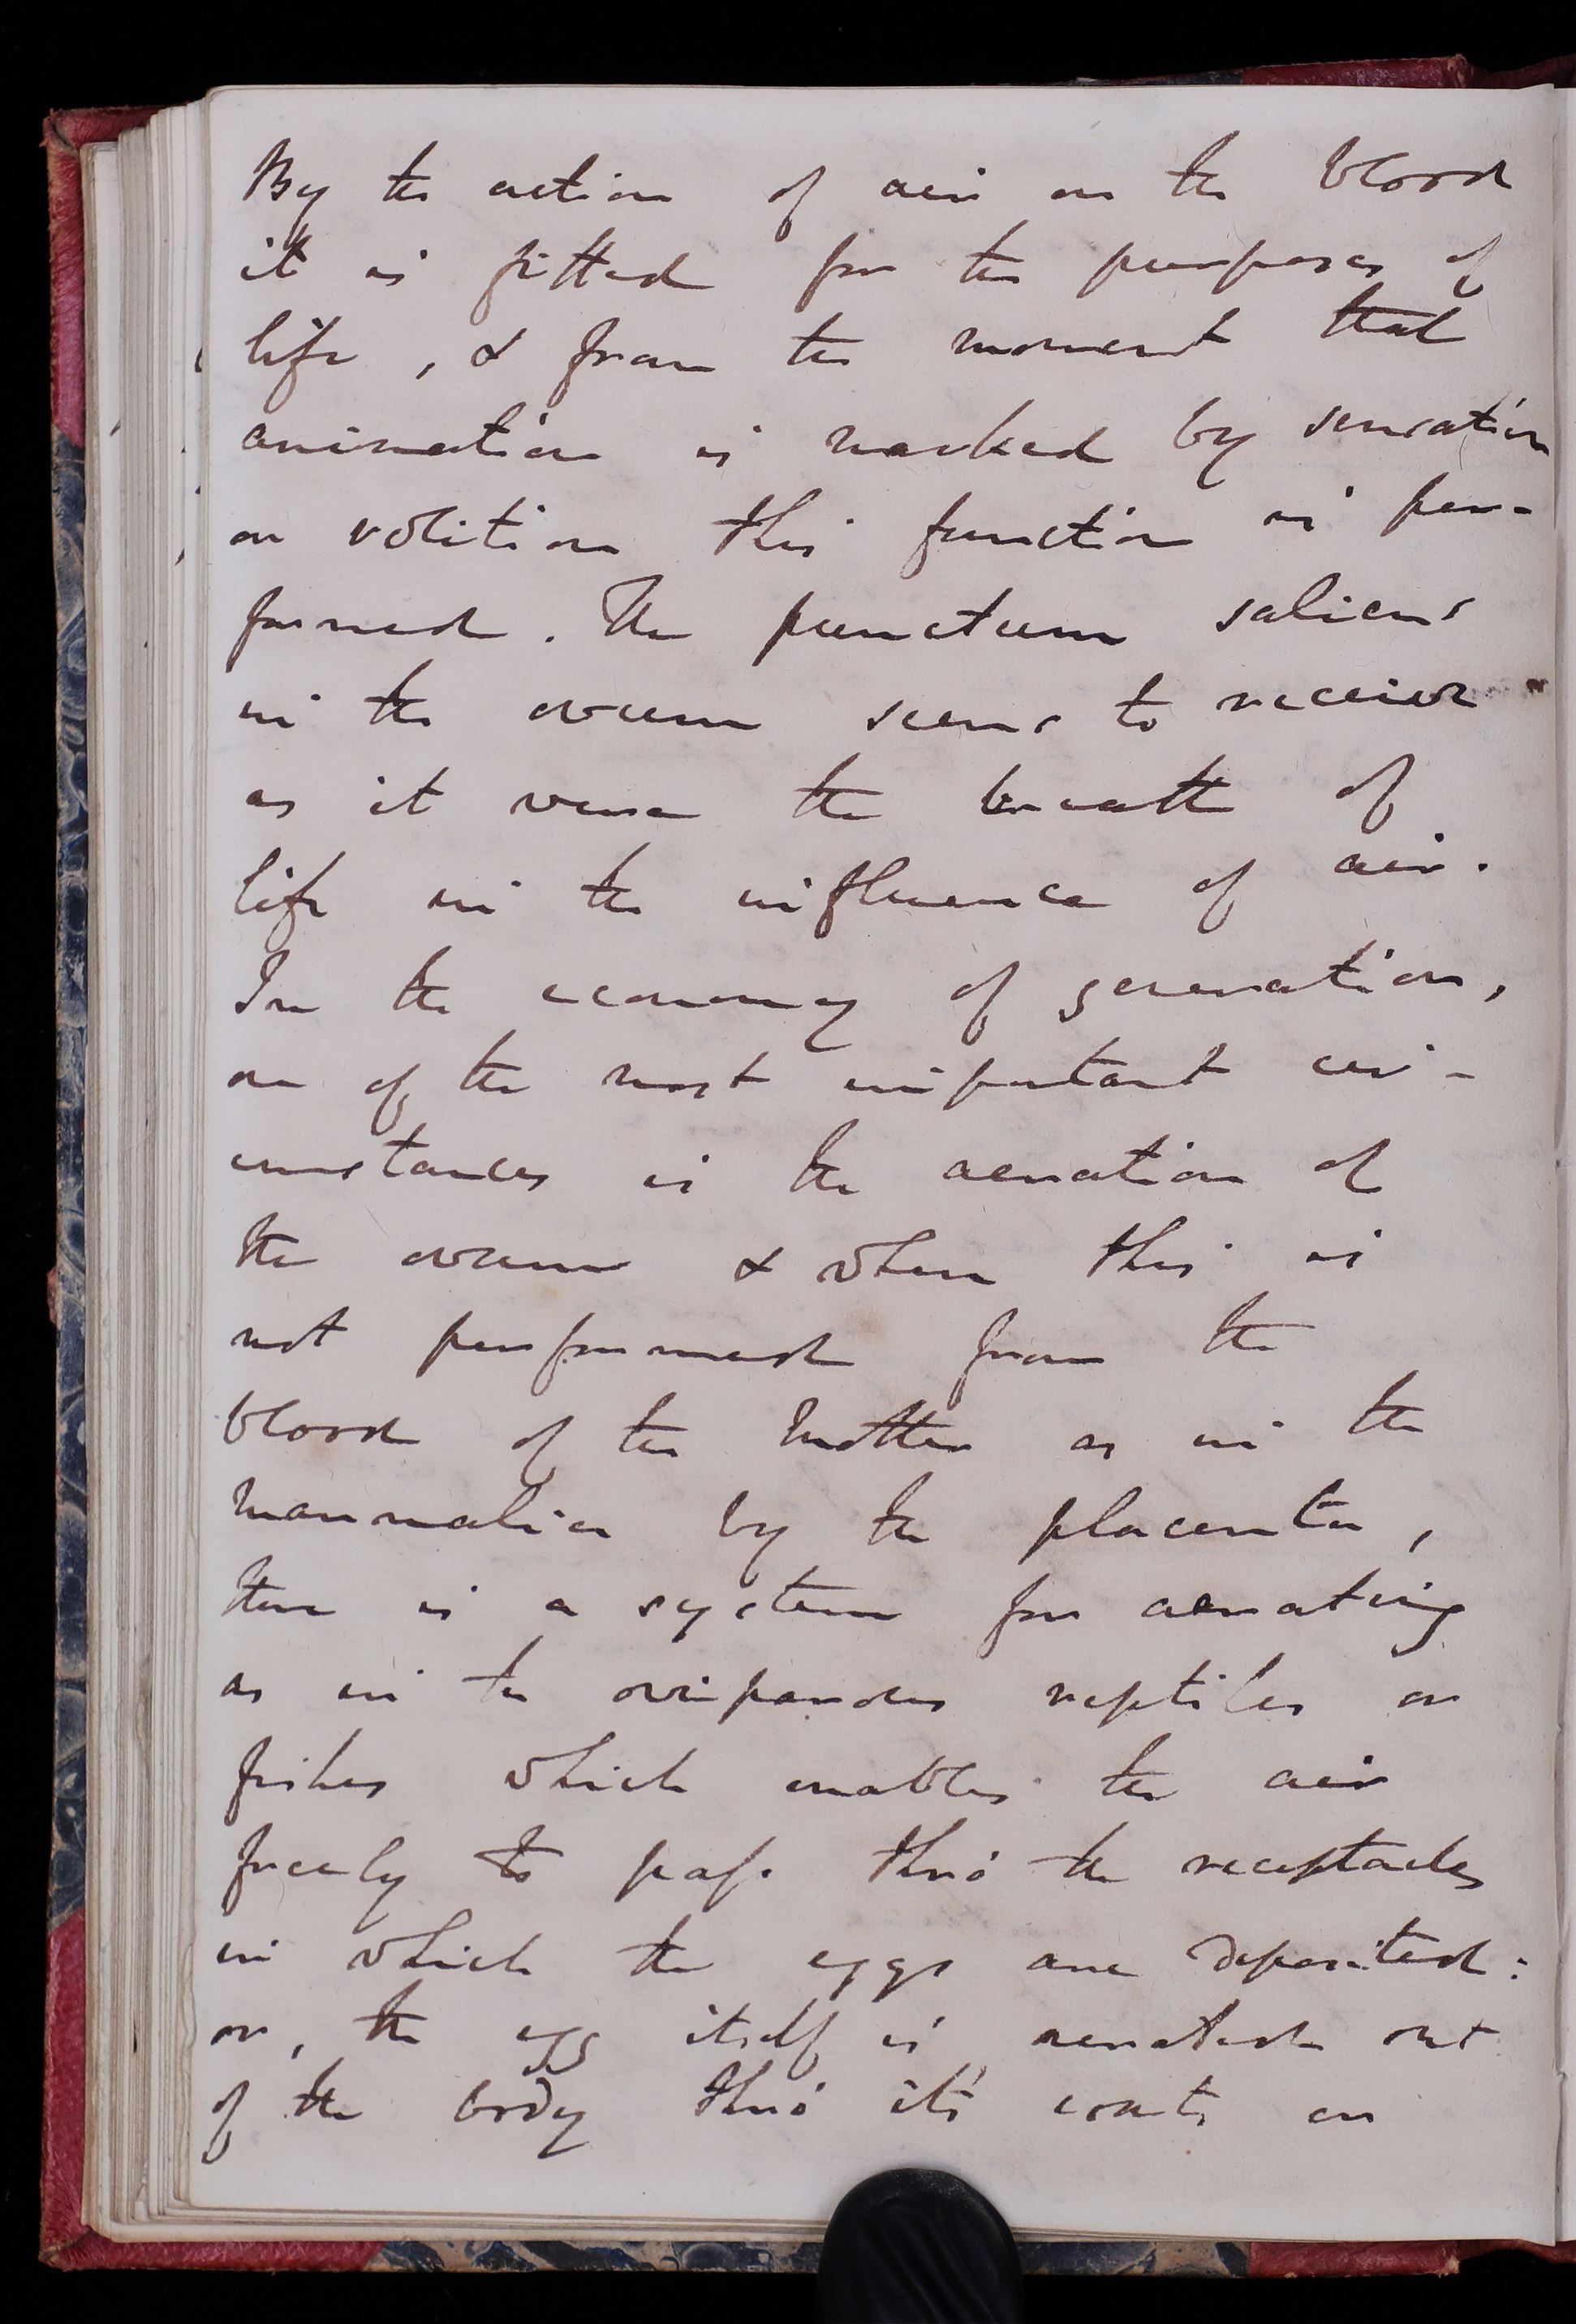 By the action of air on the blood
it is fitted for the purposes of
life, & from the moment that
animation is marked by sensation
or volition this function is per-
formed. The punctum saliens
in the ovum seems to receive
as it were the breath of
life in the influence of air.
In the economy of generation,
one of the most important cir-
cumstances is the aeration of
the ovum & when this is
not performed from the
blood of the mother as in the
mammalia by the placenta,
there is a system for aerating
as in the oviparous reptiles or
fishes which enables the air
freely to pass thro' the receptacles
in which the eggs are deposited:
or, the egg itself is aerated out
of the body thro' it's coats or